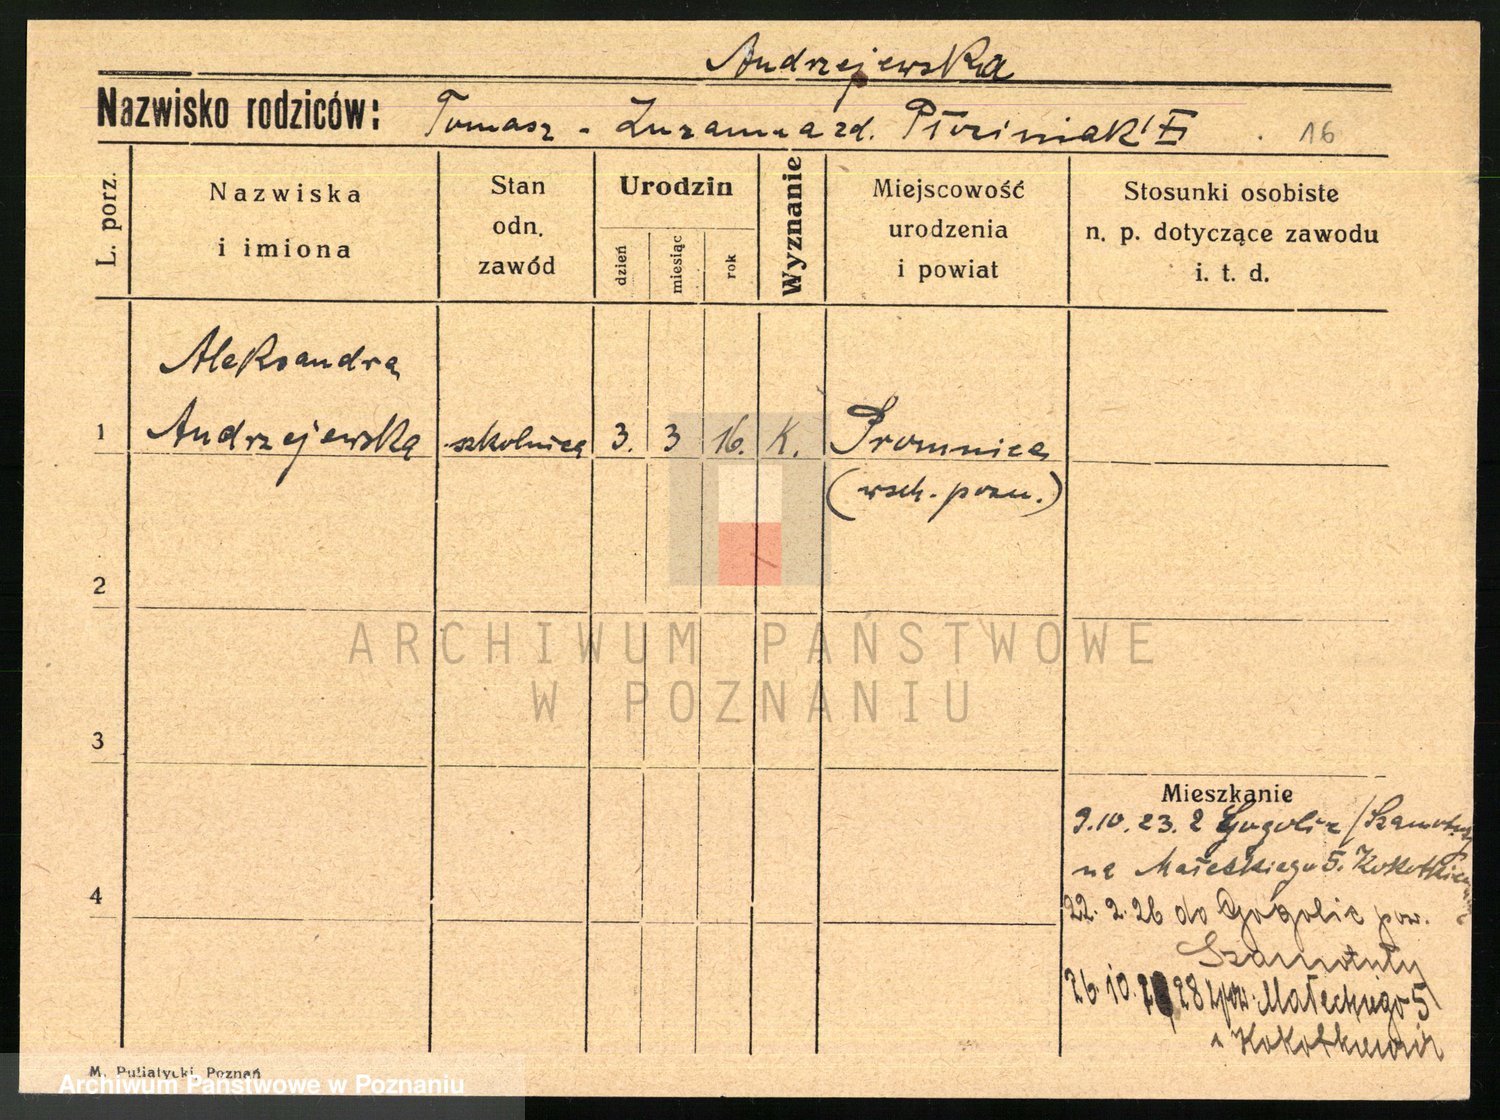 Andrzejewska
Nazwisko rodziców: Tomasz - Zuzanna zd. 16
L. porz.
Nazwiska
i imiona
Stan
odn.
zawód
Urodzin
dzień
miesiąc
rok
Wyznanie
Miejscowość
urodzenia
i powiat
Stosunki osobiste
n. p. dotyczące zawodu
i. t. d.
Aleksandra
1 Andrzejewska szkolnica 3. 3 16. K. Promnice
(wsch. pozn.)
2
3
4
ARCHIWUM PAŃSTWOWE
W POZNANIU
Mieszkanie
9.10.23. z Gogolic /Szamotuły
na Małeckiego 5.
22.2.26 do Gogolic pow.
Szamotuły
26.10. 28 Małeckiego 5
M. Putiatycki, Poznań
Archiwum Państwowe w Poznaniu